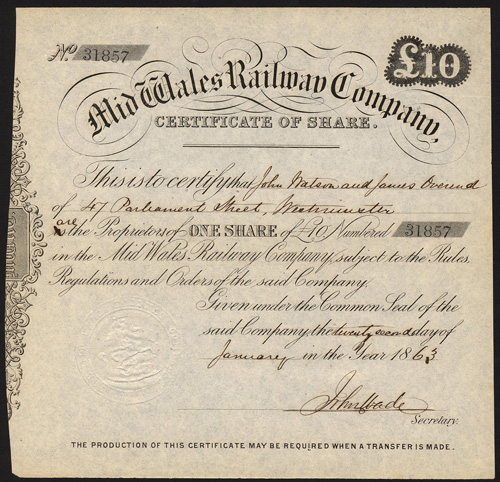 No. 31857
£10
Mid Wales Railway Company,
CERTIFICATE OF SHARE.
This is to certify that John Watson and James Overend
of 47 Parliament Street, Westminster
are the Proprietors of ONE SHARE of £10 Numbered 31857
in the MID WALES RAILWAY COMPANY, subject to the Rules
Regulations and Orders of the said Company.
Given under the Common Seal of the
said Company, the twenty second day of
January in the Year 1863
John Wade
Secretary.
THE PRODUCTION OF THIS CERTIFICATE MAY BE REQUIRED WHEN A TRANSFER IS MADE.